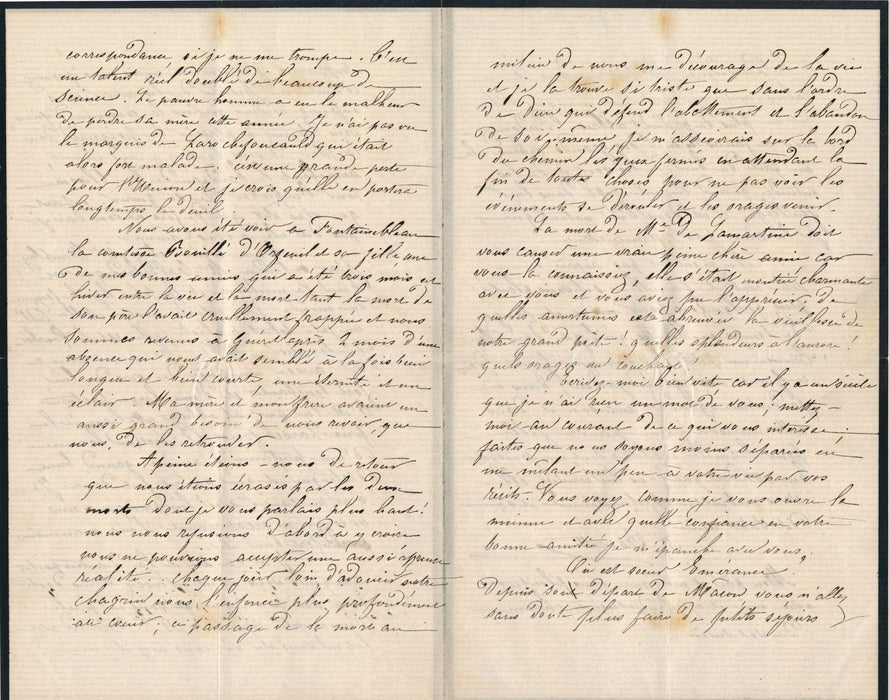 correspondance, si je ne me trompe. C'est
un talent réel doublé de beaucoup de
science. Le pauvre homme a eu le malheur
de perdre sa mère cette année. Je n'ai pas vu
le marquis de Larochefoucauld qui était
alors fort malade. c'est une grande perte
pour l'Œuvre et je crois qu'elle en portera
longtemps le deuil
Nous avons été voir à Fontainebleau
la comtesse Bouillé d'Orfeuil et sa fille une
de mes bonnes amies qui a été trois mois cet
hiver entre la vie et la mort tant la mort de
son père l'avait cruellement frappée et nous
sommes revenus à Guéret après 2 mois d'une
absence qui nous avait semblé à la fois bien
longue et bien courte, une éternité et un
éclair. Ma mère et mon frère avaient un
aussi grand besoin de nous revoir, que
nous, de les retrouver.
A peine étions-nous de retour
que nous étions écrasés par les deux
morts dont je vous parlais plus haut!
nous nous refusions d'abord à y croire
nous ne pouvions accepter une aussi affreuse
réalité.. chaque jour loin d'adoucir notre
chagrin nous l'enfonce plus profondément
au cœur; ce passage de la mort au
milieu de nous me décourage de la vie
et je la trouve si triste que sans l'ordre
de Dieu qui défend l'abattement et l'abandon
de soi-même je m'assiérais sur le bord
du chemin les yeux fermés en attendant la
fin de toutes choses pour ne pas voir les
événements se dérouler et les orages venir.
La mort de Mme De Lamartine doit
vous causer une vraie peine chère amie car
vous la connaissiez, elle s'était montrée charmante
avec vous et vous avez pu l'apprécier. De
quelles amertumes est abreuvée la vieillesse de
notre grand poète! quelles splendeurs à l'aurore!
quels orages au couchant!
Ecrivez-moi bien vite car il y a un siècle
que je n'ai reçu un mot de vous; mettez-
moi au courant de ce qui vous intéresse.
faites que nous soyons moins séparées en
me mêlant un peu à votre vie par vos
récits. Vous voyez comme je vous ouvre la
mienne et avec quelle confiance en votre
bonne amitié je m'épanche avec vous,
Où est sœur Emerance?
Depuis son départ de Mâcon vous n'allez
sans doute plus faire de petits séjours